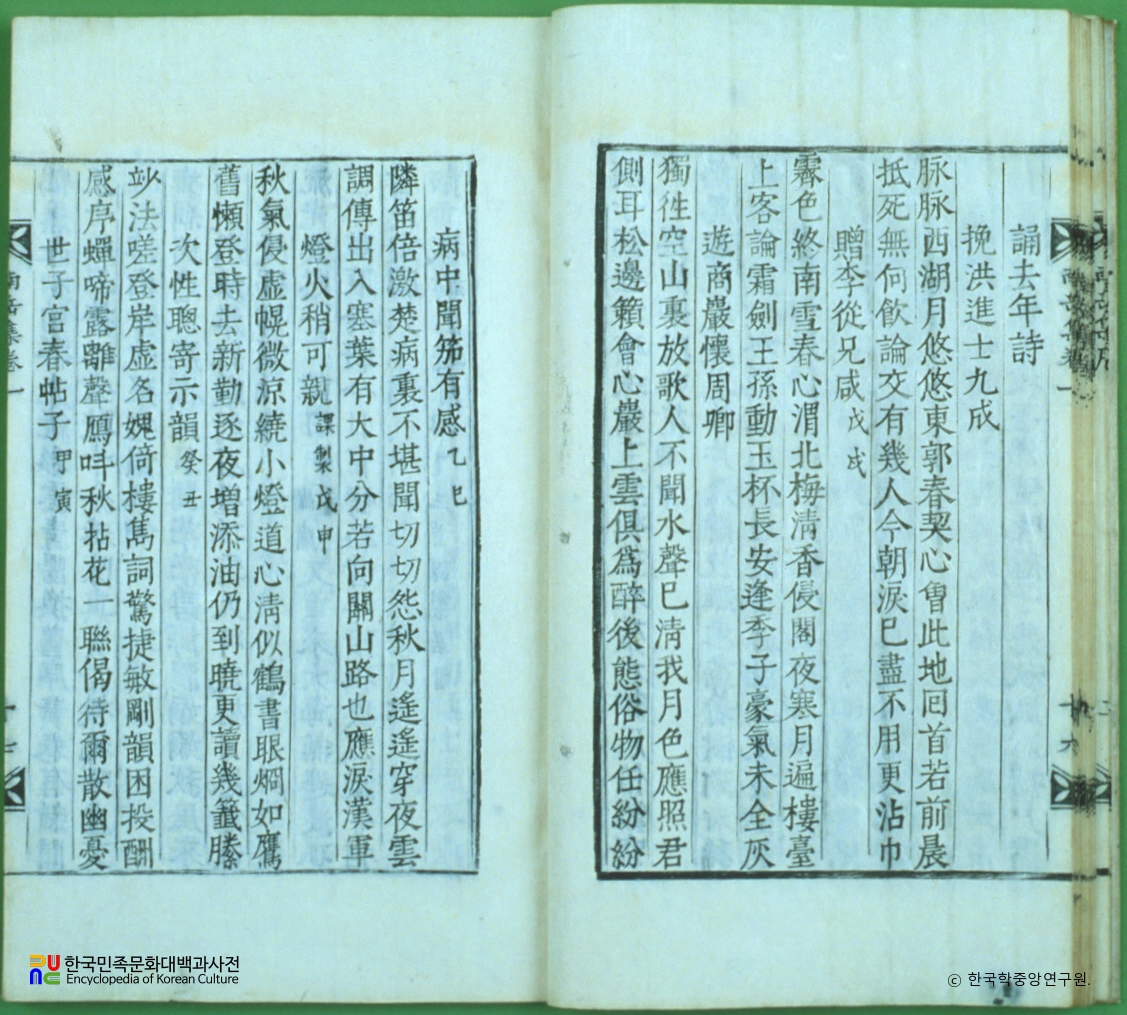 誦去年詩
挽洪進士九成
脉脉西湖月悠悠東郭春契心曾此地回首若前晨
抵死無何飮論交有幾人今朝淚已盡不用更沾巾
贈李從兄咸戊戌
霽色終南雪春心渭北梅淸香侵閣夜寒月遍樓臺
上客論霜劍王孫動玉杯長安逢季子豪氣未全灰
遊商巖懷周卿
獨徃空山裏放歌人不聞水聲已淸我月色應照君
側耳松邊籟會心巖上雲俱爲醉後態俗物任紛紛
病中聞笳有感乙巳
隣笛倍激楚病裏不堪聞切切怨秋月遙遙穿夜雲
調傳出入塞葉有大中分若向關山路也應淚漢軍
燈火稍可親課製戊申
秋氣侵虛幌微涼繞小燈道心淸似鶴書眼烱如鷹
舊懶登時去新勤逐夜增添油仍到曉更讀幾籤縢
次性聰寄示韻癸丑
妙法嗟登岸虛名媿倚樓雋詞驚捷敏剛韻困投酬
感序蟬啼露離聲鴈呌秋拈花一聯偈待爾散幽憂
世子宮春帖子甲寅
南岳集卷一
한국민족문화대백과사전
Encyclopedia of Korean Culture
© 한국학중앙연구원.